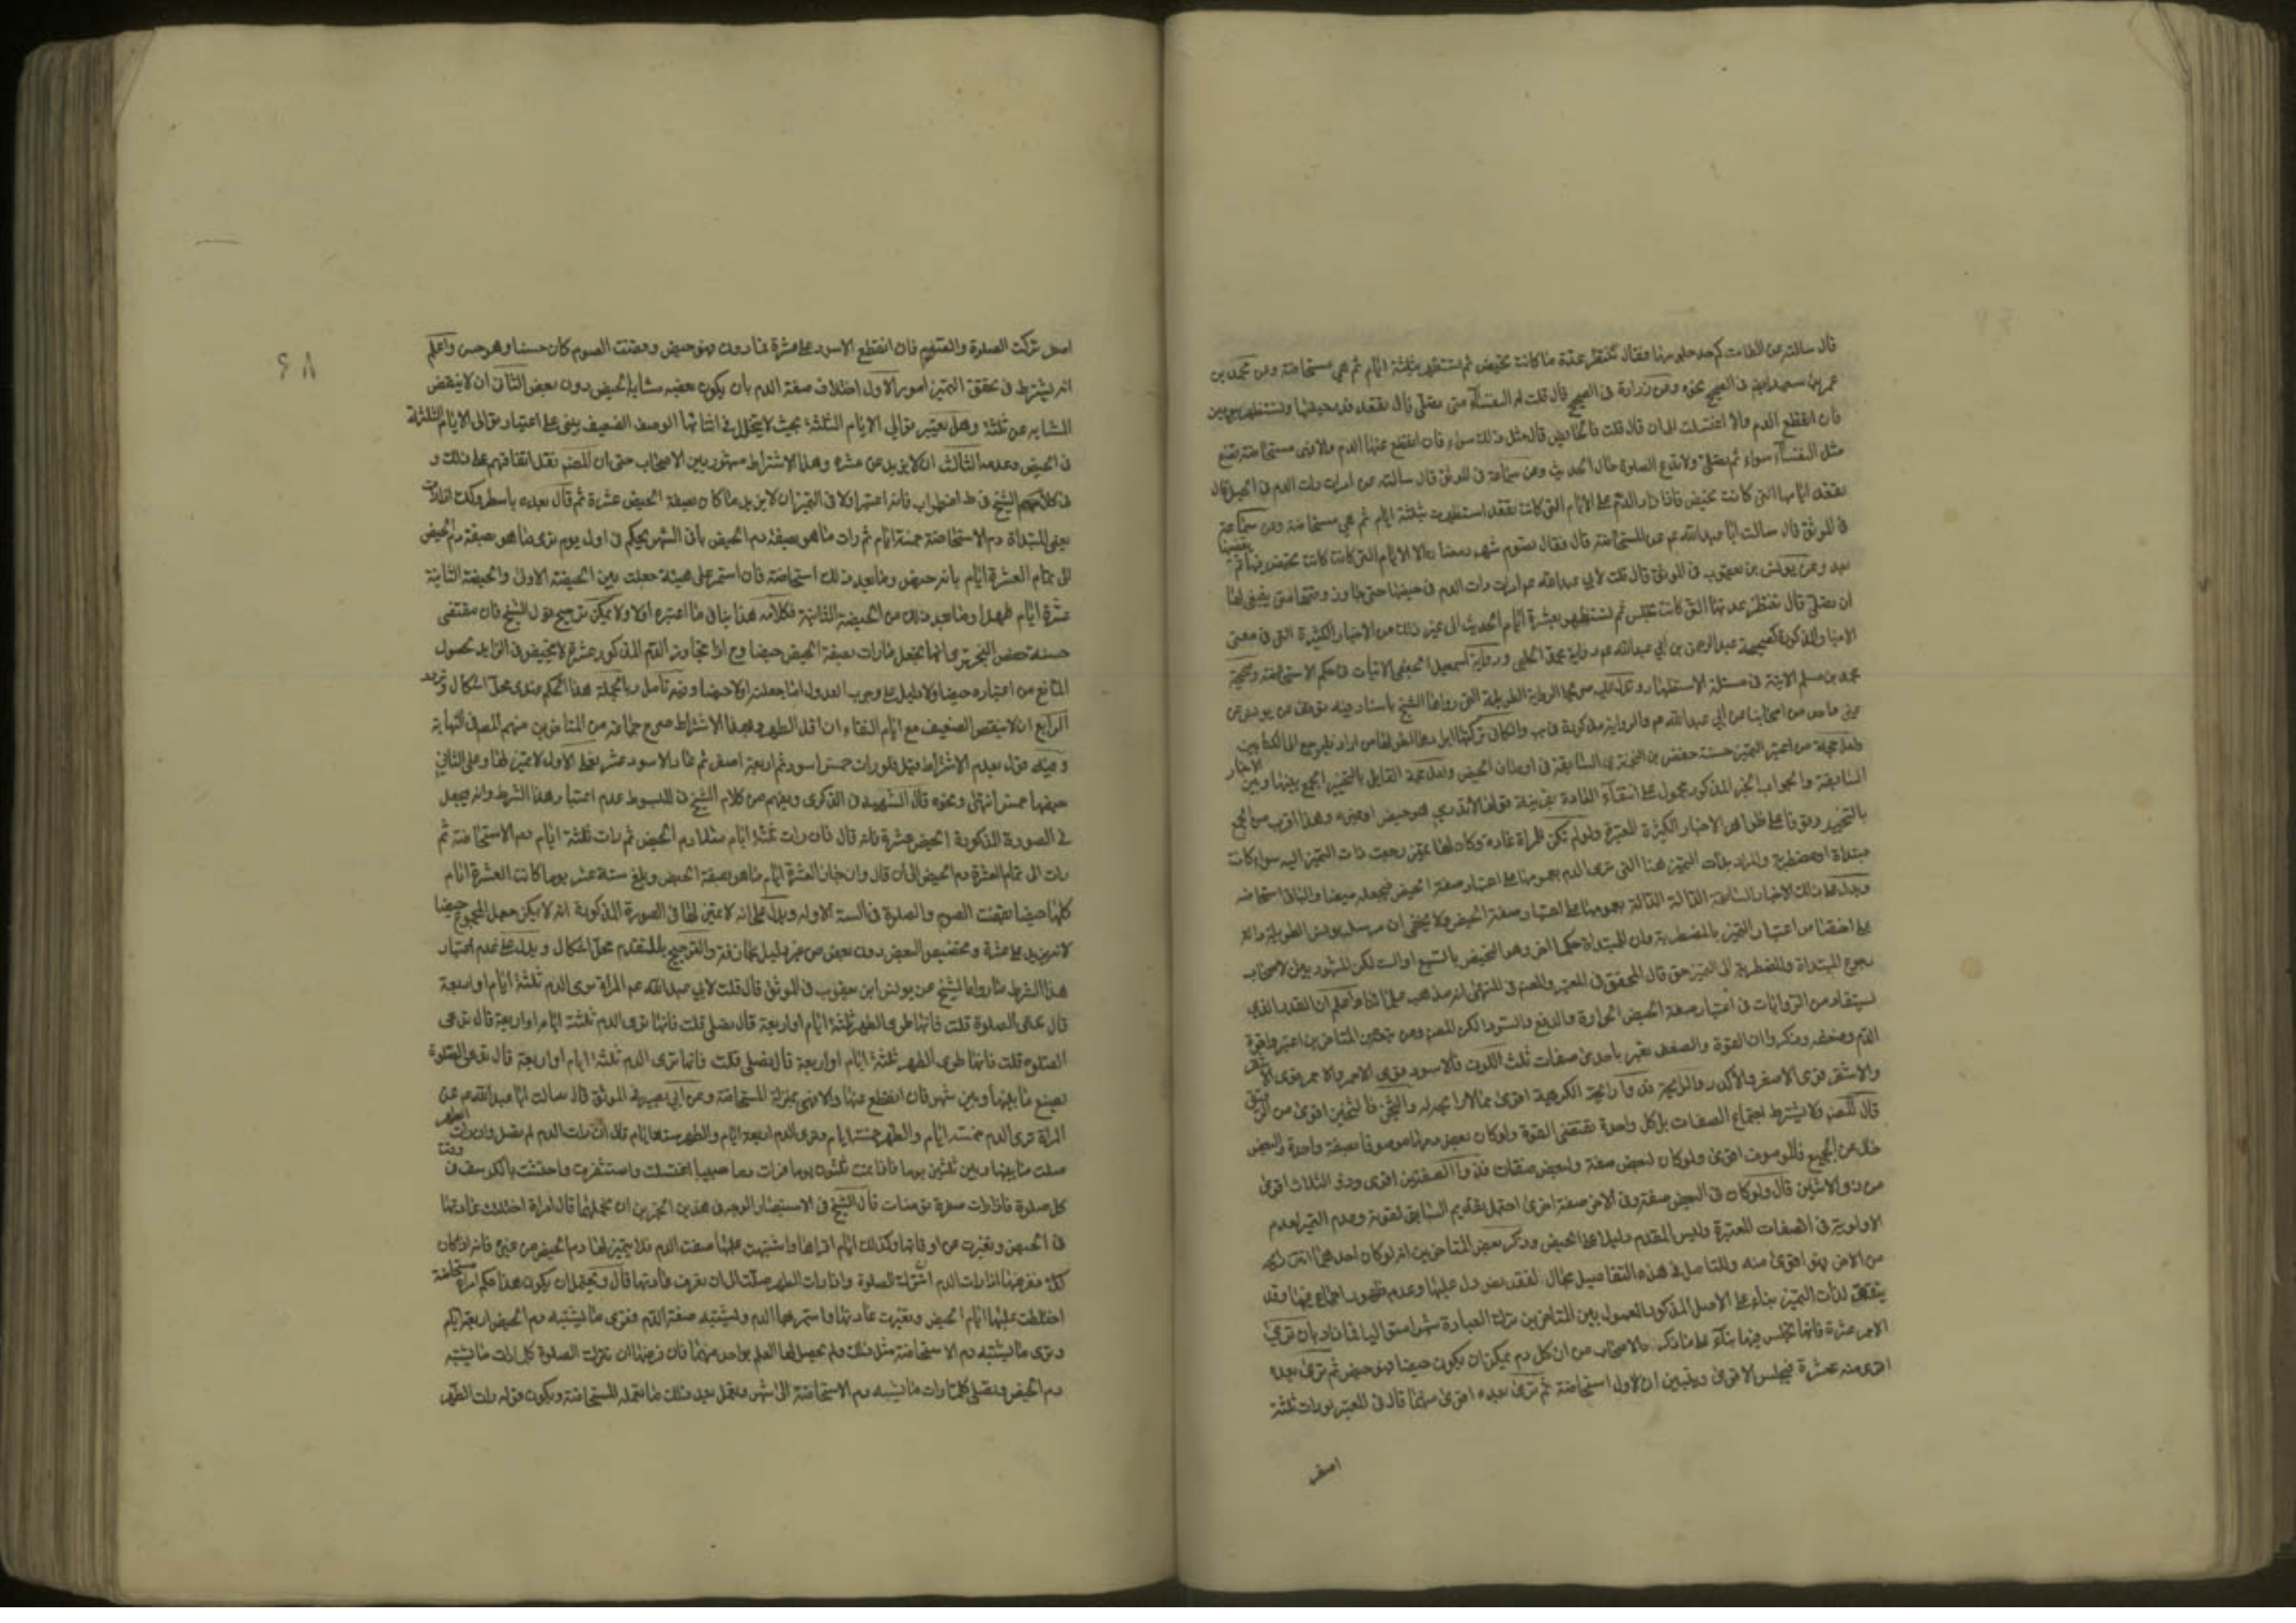 قال سالته عن الطامث كم حد جلوسها فقال تنتظر عدة ما كانت تحيض ثم تستظهر بثلثة ايام ثم هي مستحاضة وعن محمد بن
عمرو بن سعيد في الصحيح نحوه وعن زرارة في الصحيح قال قلت له النفساء متى تصلي قال تقعد قدر حيضها وتستظهر بيومين
فان انقطع الدم والا اغتسلت الى ان قال قلت فالحايض قال مثل ذلك سواء فان انقطع عنها الدم والا فهي مستحاضة تصنع
مثل النفساء سواء ثم تصلي ولا تدع الصلوة على حال الحديث وعن سماعة في الموثق قال سالته عن امراة رات الدم في الحبل قال
تقعد ايامها التي كانت تحيض فاذا زاد الدم على الايام التي كانت تقعد استظهرت بثلثة ايام ثم هي مستحاضة وعن سماعة
في الموثق قال سالت ابا عبد الله عم عن المستحاضة قال فقال تصوم شهر رمضان الا الايام التي كانت تحيض فيها ثم تقضيها
بعد وعن يونس بن يعقوب في الموثق قال قلت لابي عبد الله عم امراة رات الدم في حيضها حتى جاوز وقتها متى ينبغي لها
ان تصلي قال تنتظر عدتها التي كانت تجلس ثم تستظهر بعشرة ايام الحديث الى غير ذلك من الاخبار الكثيرة التي في معنى
الاخبار المذكورة كصحيحة عبد الرحمن بن ابي عبد الله عم ورواية محمد الحلبي ورواية اسمعيل الجعفي الاتيات في حكم الاستحاضة وصحيحة
محمد بن مسلم الاتية في مسئلة الاستظهار و يدل عليه صريحا الرواية الطويلة التي رواها الشيخ باسناد فيه توقف عن يونس عن
غير واحد من اصحابنا عن ابي عبد الله عم والرواية مذكورة في يب والكافي تركتها
حجة من اعتبر التميز حسنة حفص بن البختري السابقة في اوصاف الحيض ولعل حجة القايل بالتخيير الجمع بينها وبين الاخبار
السابقة والجواب الخبر المذكور محمول على انتفاء العادة بقرينة قولها لا تدري هو حيض او غيره وهذا اقرب من الجمع
بالتخيير وتوقفا على ظواهر الاخبار الكثيرة المعتبرة ولو لم تكن للمراة عادة وكان لها تميز رجعت ذات التميز اليه سواء كانت
مبتداة او مضطربة والمراد بذات التميز هنا التي ترى الدم
ويدل على ذلك الاخبار السابقة الدالة بعمومها على اعتبار صفة الحيض ولا يخفى ان مرسلة يونس الطويلة دالة
على
رجوع المبتداة والمضطربة الى التميز حتى قال المحقق في المعتبر والمصنف في المنتهى انه مذهب علمائنا واعلم ان القدر الذي
يستفاد من الروايات في اعتبار صفة الحيض الحرارة والدفع والسواد لكن المصنف ومن تبعه من المتاخرين اعتبروا قوة
الدم وضعفه وذكروا ان القوة والضعف يعتبر باحدى صفات ثلث اللون فالاسود قوي الاحمر والاحمر قوي الاشقر
والاشقر قوي الاصفر والاكدر والرايحة فذو الرايحة الكريهة اقوى مما لا رايحة له والثخن فالثخين اقوى من الرقيق
قال المصنف ولا يشترط اجتماع الصفات بل كل واحدة تقتضي القوة ولو كان بعض دمها موصوفا بصفة واحدة والبعض
خال عن الجميع فالموصوف اقوى ولو كان لبعض صفة ولبعض صفتان فذو الصفتين اقوى وذو الثلاث اقوى
من ذو الاثنين قال ولو كان في البعض صفة وفي الاخر صفة اخرى احتمل تقديم السابق لقوته وعدم التميز لعدم
الاولوية في الصفات المعتبرة وليس المتقدم دليلا على الحيض وذكر بعض المتاخرين انه لو كان احدهما
من الاخر فهو اقوى منه وللتامل في هذه التفاصيل مجال لفقد نص دل عليها وعدم ظهور اجماع فيها وقد
يتفق لذات التميز بناء على الاصل المذكور المعمول بين المتاخرين ترك العبادة شهرا
الاحمر عشرة فانها تجلس فيها بناء على ما ذكره الاصحاب من ان كل دم يمكن ان يكون حيضا فهو حيض ثم ترى بعده
اقوى منه عشرة فيجلس الاقوى ويتبين ان الاول استحاضة ثم ترى بعده اقوى منهما قال في المعتبر لو رات ثلثة
اصفر
٦٨
اصفر تركت الصلوة والصوم فان انقطع الاسود على عشرة فما دون فهو حيض وقضت الصوم كان حسنا وهو حسن واعلم
انه يشترط في تحقق التميز امور الاول اختلاف صفة الدم بان يكون بعضه مشابها لحيض دون بعض الثاني ان لا ينقص
المشابه عن ثلثة وهل يعتبر توالي الايام الثلثة بحيث لا يتخلل في اثنائها الوصف الضعيف يبنى على اعتبار توالي الايام الثلثة
في الحيض وعدمه الثالث ان لا يزيد عن عشرة وهذا الاشتراط مشهور بين الاصحاب حتى ان المصنف نقل اتفاقهم على ذلك و
في كلام الشيخ في ط اضطراب فانه اعتبر اولا في التميز ان لا يزيد ما كان بصفة الحيض عشرة ثم قال بعده باسطر وكذا اذا رات
يعني المبتداة دم الاستحاضة خمسة ايام ثم رات ما هو بصفة دم الحيض باقي الشهر يحكم في اول يوم ترى ما هو بصفة دم الحيض
الى تمام العشرة ايام بانه حيض وما بعد ذلك استحاضة فان استمر على هيئته جعلت بين الحيضة الاولى والحيضة الثانية
عشرة ايام طهرا وما بعد ذلك من الحيضة الثانية فكلامه هذا ينافي ما اعتبره اولا ولا يمكن ترجيح قول الشيخ فان مقتضى
حسنة حفص البختري انما تجعل ما رات بصفة الحيض حيضا وح اذا تجاوز الدم المذكور عشرة لا تحيض في الزايد لحصول
المانع من اعتباره حيضا ولا دليل على وجوب العدول وفيه تامل وبالجملة هذا الحكم عندي محل اشكال وتردد
الرابع ان لا ينقص الضعيف مع ايام النقاء ان اقل الطهر وهذا الاشتراط صرح جماعة من المتاخرين منهم المصنف في النهاية
وفيه قول بعدم الاشتراط قيل فلو رات خمسة اسود ثم اربعة اصفر ثم عاد الاسود عشرة فعلى الاول لا تميز لها وعلى الثاني
حيضها خمسة انتهى ونحوه قال الشهيد في الذكرى ويفهم من كلام الشيخ في المبسوط عدم اعتبار هذا الشرط وانه يجعل
في الصورة المذكورة الحيض عشرة فانه قال فان رات ثلثة ايام مثلا دم الحيض ثم رات ثلثة ايام دم الاستحاضة ثم
رات الى تمام العشرة دم الحيض الى ان قال وان جاز العشرة ايام ما هو بصفة الحيض وبلغ ستة عشر يوما كانت العشرة ايام
كلها حيضا وقضت الصوم والصلوة في الستة الاولة ويدل على انه لا تميز لها في الصورة المذكورة انه لا يمكن جعل المجموع حيضا
لانه يزيد على عشرة وتخصيص البعض دون بعض من غير دليل مجازفة والترجيح بالتقدم محل اشكال ويدل على عدم اعتبار
هذا الشرط ما رواه الشيخ عن يونس ابن يعقوب في الموثق قال قلت لابي عبد الله عم المراة ترى الدم ثلثة ايام او اربعة
قال تدع الصلوة قلت فانها ترى الطهر ثلثة ايام او اربعة قال تصلي قلت فانها ترى الدم ثلثة ايام او اربعة قال تدع
الصلوة قلت فانها ترى الطهر ثلثة ايام او اربعة قال تصلي قلت فانها ترى الدم ثلثة ايام او اربعة قال تدع الصلوة
تصنع ما بينها وبين شهر فان انقطع عنها والا فهي بمنزلة المستحاضة وعن ابي بصير في الموثق قال سالت ابا عبد الله عم عن
المراة ترى الدم خمسة ايام والطهر خمسة ايام وترى الدم اربعة ايام والطهر ستة ايام قال ان رات الدم لم تصل وان رات الطهر
صلت ما بينها وبين ثلثين يوما فاذا تمت ثلثون يوما فرات دما صبيبا اغتسلت واستثفرت واحتشت بالكرسف في وقت
كل صلوة فاذا رات صفرة توضات قال الشيخ في الاستبصار الوجه في هذين الخبرين ان نحملهما على امراة اختلطت عادتها
في الحيض وتغيرت عن اوقاتها وكذلك ايام اقرائها واشتبهت عليها صفة الدم فلا يتميز لها دم الحيض من غيره فانه اذا كان
كذلك ففرضها اذا رات الدم ان تترك الصلوة واذا رات الطهر صلت الى ان تعرف عادتها قال ويحتمل ان يكون هذا حكم امراة مستحاضة
اختلطت عليها ايام الحيض وتغيرت عادتها واستمر بها الدم وتشتبه صفة الدم فترى ما يشبه دم الحيض اربعة ايام
وترى ما يشبه دم الاستحاضة مثل ذلك ولم يحصل لها العلم بواحد منهما فان فرضها ان تترك الصلوة كلما رات ما يشبه
دم الحيض وتصلي كلما رات ما يشبه دم الاستحاضة الى شهر وتعمل بعد ذلك ما تعمله المستحاضة ويكون قوله رات الطهر